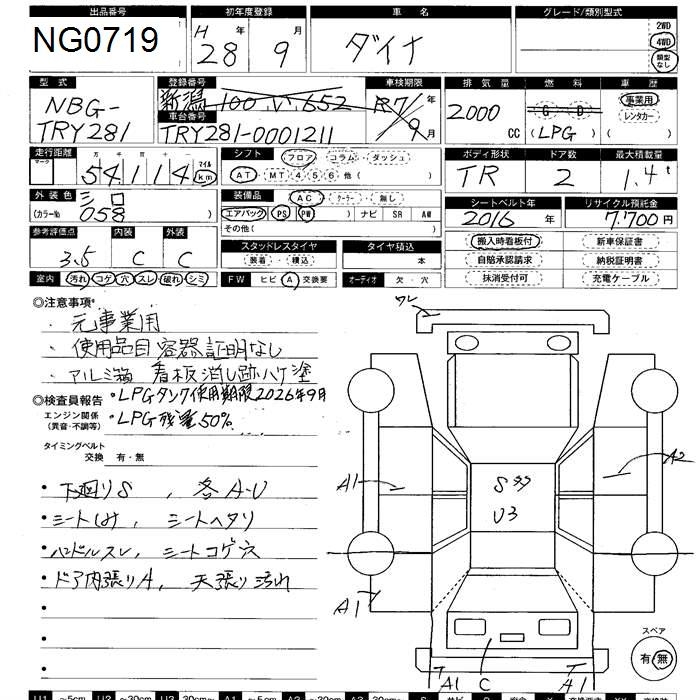 出品番号 初年度登録 車名 グレード/類別型式
NG0719 H 28年 9月 ダイナ
2WD
4WD
類型なし
型式 登録番号 車検期限 排気量 燃料 車歴
NBG- 新潟 100 い 652 R7年 G D 事業用
TRY281 車台番号 9月 2000 CC (LPG) レンタカー
TRY281-0001211 ( )
走行距離 シフト フロア コラム ダッシュ ボディ形状 ドア数 最大積載量
マーク 十万 千 百 十 一 マイル
54114 km AT・MT 4 5 6 他( ) TR 2 1.4t
外装色 三口 装備品 AC・クーラー・無し シートベルト年 リサイクル預託金
(カラーNo 058 ) エアバック PS PW ナビ SR AW 2016年 7,700円
その他( )
参考評価点 内装 外装 スタッドレスタイヤ タイヤ積込 搬入時看板付 新車保証書
3.5 C C 装着・積込 本 自賠承認請求 納税証明書
室内 汚れ コゲ 穴 スレ 破れ シミ FW ヒビ A 交換要 オーディオ 欠・穴 抹消受付可 充電ケーブル
◎注意事項
・元事業用
・使用品目容器証明なし
・アルミ箱 看板消し跡ハケ塗
◎検査員報告 ・LPGタンク使用期限2026年9月
エンジン関係 ・LPG残量50%
(異音・不調等)
タイミングベルト
交換 有・無
・下廻りS、各A-U
・シートしみ、シートヘタリ
・ハンドルスレ、シートコゲ穴
・ドア内張りA、天張り汚れ
ワレ
A1
A2
S
U3
A1
スペア
有・無
A1 C A1